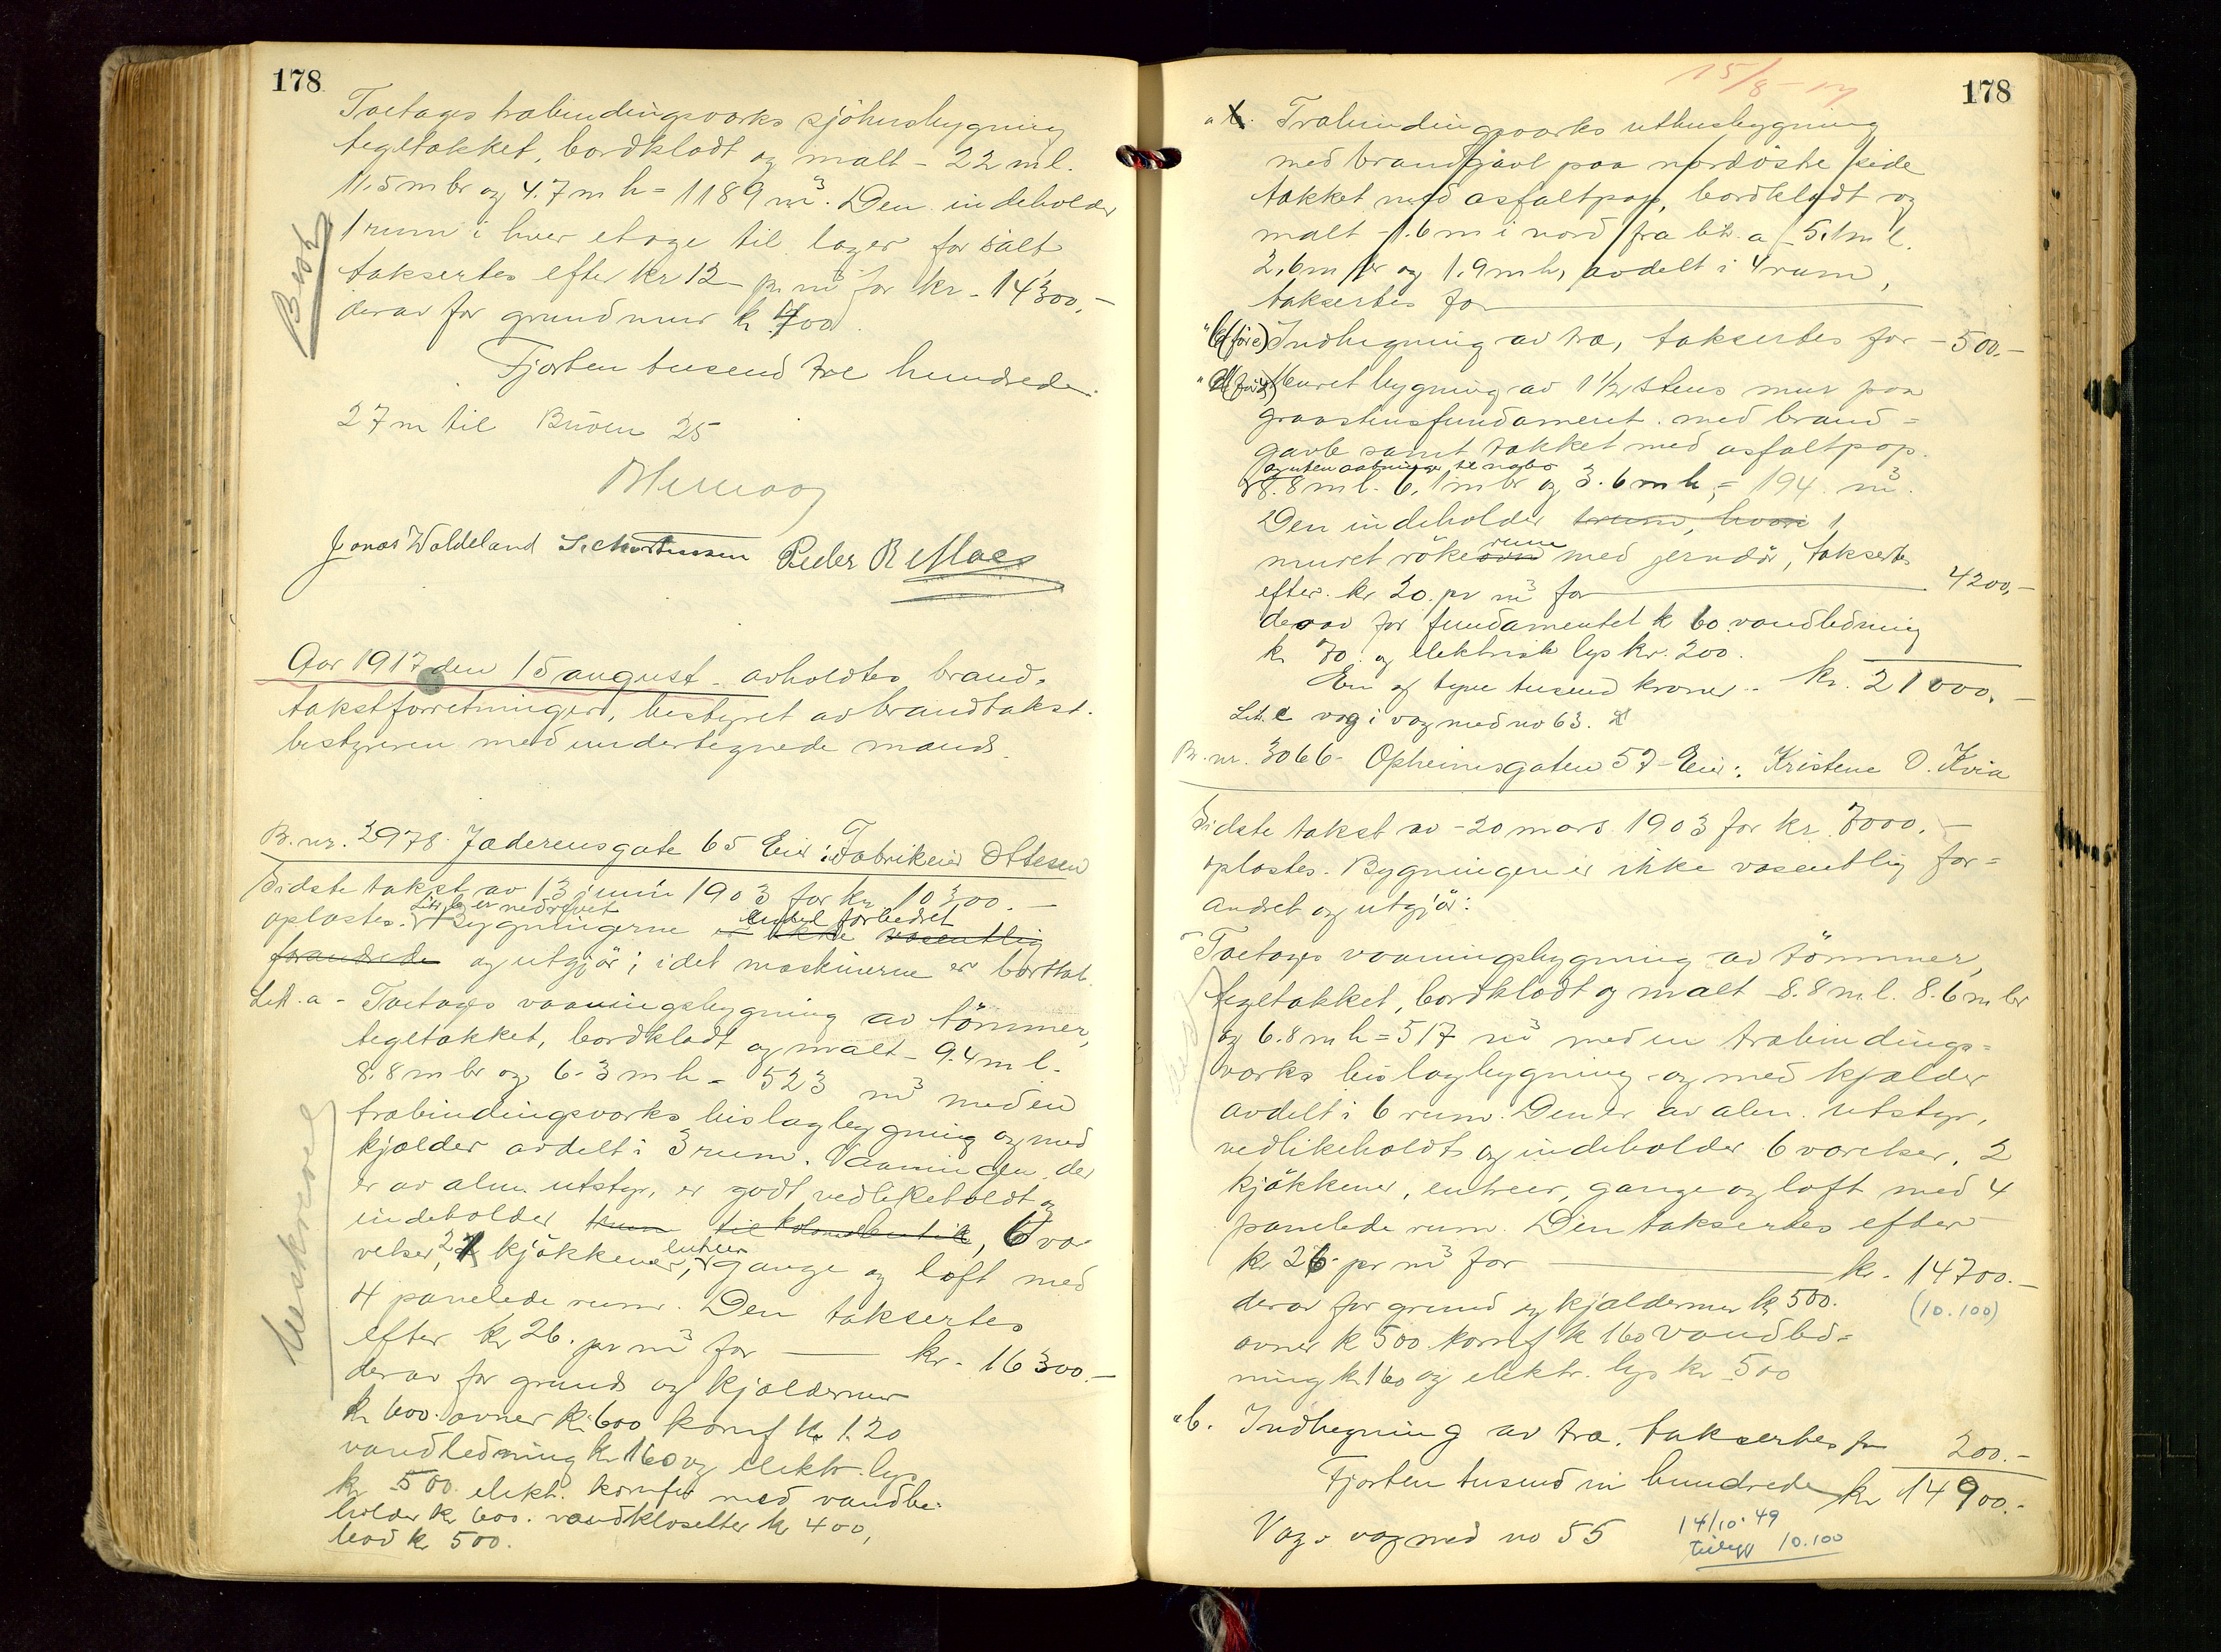 178
Toetages træbindingsværks sjöhusbygning
tegltækket, bordklædt og malt - 22 m l.
11.5 m br og 4.7 m h = 1189 m³. Den indeholder
1 rum i hver etage til lager for salt
taksertes efter kr 12 - pr m³ for kr - 14300,-
derav for grundmur kr 700.
Fjorten tusend tre hundrede
27 m til Buöen 25
Jonas Waldeland Peder R Maes
Aar 1917 den 15 august avholdtes brand-
takstforretninger, bestyret av brandtakst-
bestyreren med undertegnede mænd.
B. nr. 2978. Jæderensgate 65 Eier: Fabrikeier Ottesen
Sidste takst av 13 juni 1903 for kr 10300.-
Litr. b er nedrevet endel forbedret
oplæstes. Bygningerne er ikke væsentlig
forandrede og utgjör; idet maskinerne er borttat.
Litr. a - Toetages vaaningsbygning av tömmer,
tegltækket, bordklædt og malt - 9.4 m l.
8.8 m br og 6.3 m h = 523 m³ med en
træbindingsværks bislagbygning og med
kjælder avdelt i 3 rum. Vaaningen, der
er av alm. utstyr, er godt vedlikeholdt og
indeholder til , 6 væ-
relser, 2 kjökkener, entreer, gange og loft med
4 panelede rum. Den taksertes
efter kr 26. pr m³ for kr. 16300.-
derav for grund og kjældermur
kr 600. ovner kr. 600 komf kr 120
vandledning kr 160 og elektr. lys
kr 500 elekt. komfur med vandbe-
holder kr 600. vandklosetter kr 400,
bad kr 500.
Beskrevet
15/8-17
178
" b. Træbindingsværks uthusbygning
med brandgavl paa nordöstre side
tækket med asfaltpap, bordklædt og
malt - 1.6 m i nord fra litr. a - 5.1 m l.
2,6 m br og 1.9 m h, avdelt i 4 rum,
taksertes for
" b (för c) Indhegning av træ, taksertes for - 500.-
" (för d) Muret bygning av 1 1/2 stens mur paa
graastensfundament med brand-
gavle samt tækket med asfaltpap.
og uten aabninger til nabo
8.8 m l. 6.1 m br og 3.6 m h, = 194 m³.
Den indeholder 1 rum, hvori 1
muret rökerum med jerndör, taksertes
efter kr 20. pr m³ for 4200,-
derav for fundamentet kr 60 vandledning
kr 70. og elektrisk lys kr. 200.
En og tyve tusend kroner.. kr. 21000,-
Litr. c væg i væg med no 63.
B. nr. 3066 - Opheimsgaten 57 - Eier: Kristene O. Kvia
Sidste takst av - 20 mars 1903 for kr. 7000.-
oplæstes. Bygningen er ikke væsentlig for-
andret og utgjör:
Toetages vaaningsbygning av tömmer,
tegltækket, bordklædt og malt - 8.8 m l. 8.6 m br
og 6.8 m h = 517 m³ med en træbindings-
værks bislagbygning og med kjælder
avdelt i 6 rum. Den er av alm. utstyr,
vedlikeholdt og indeholder 6 værelser, 2
kjökkener, entreer, gange og loft med 4
panelede rum. Den taksertes efter
kr 26 pr m³ for kr. 14700.-
derav for grund og kjældermur kr 500. (10.100)
ovner kr 500 komf kr 160 vandled-
ning kr 160 og elektr. lys kr 500
" b. Indhegning av træ. taksertes for 200.-
Fjorten tusend ni hundrede kr 14900.-
Væg i væg med no 55
14/10-49
tillegg 10.100